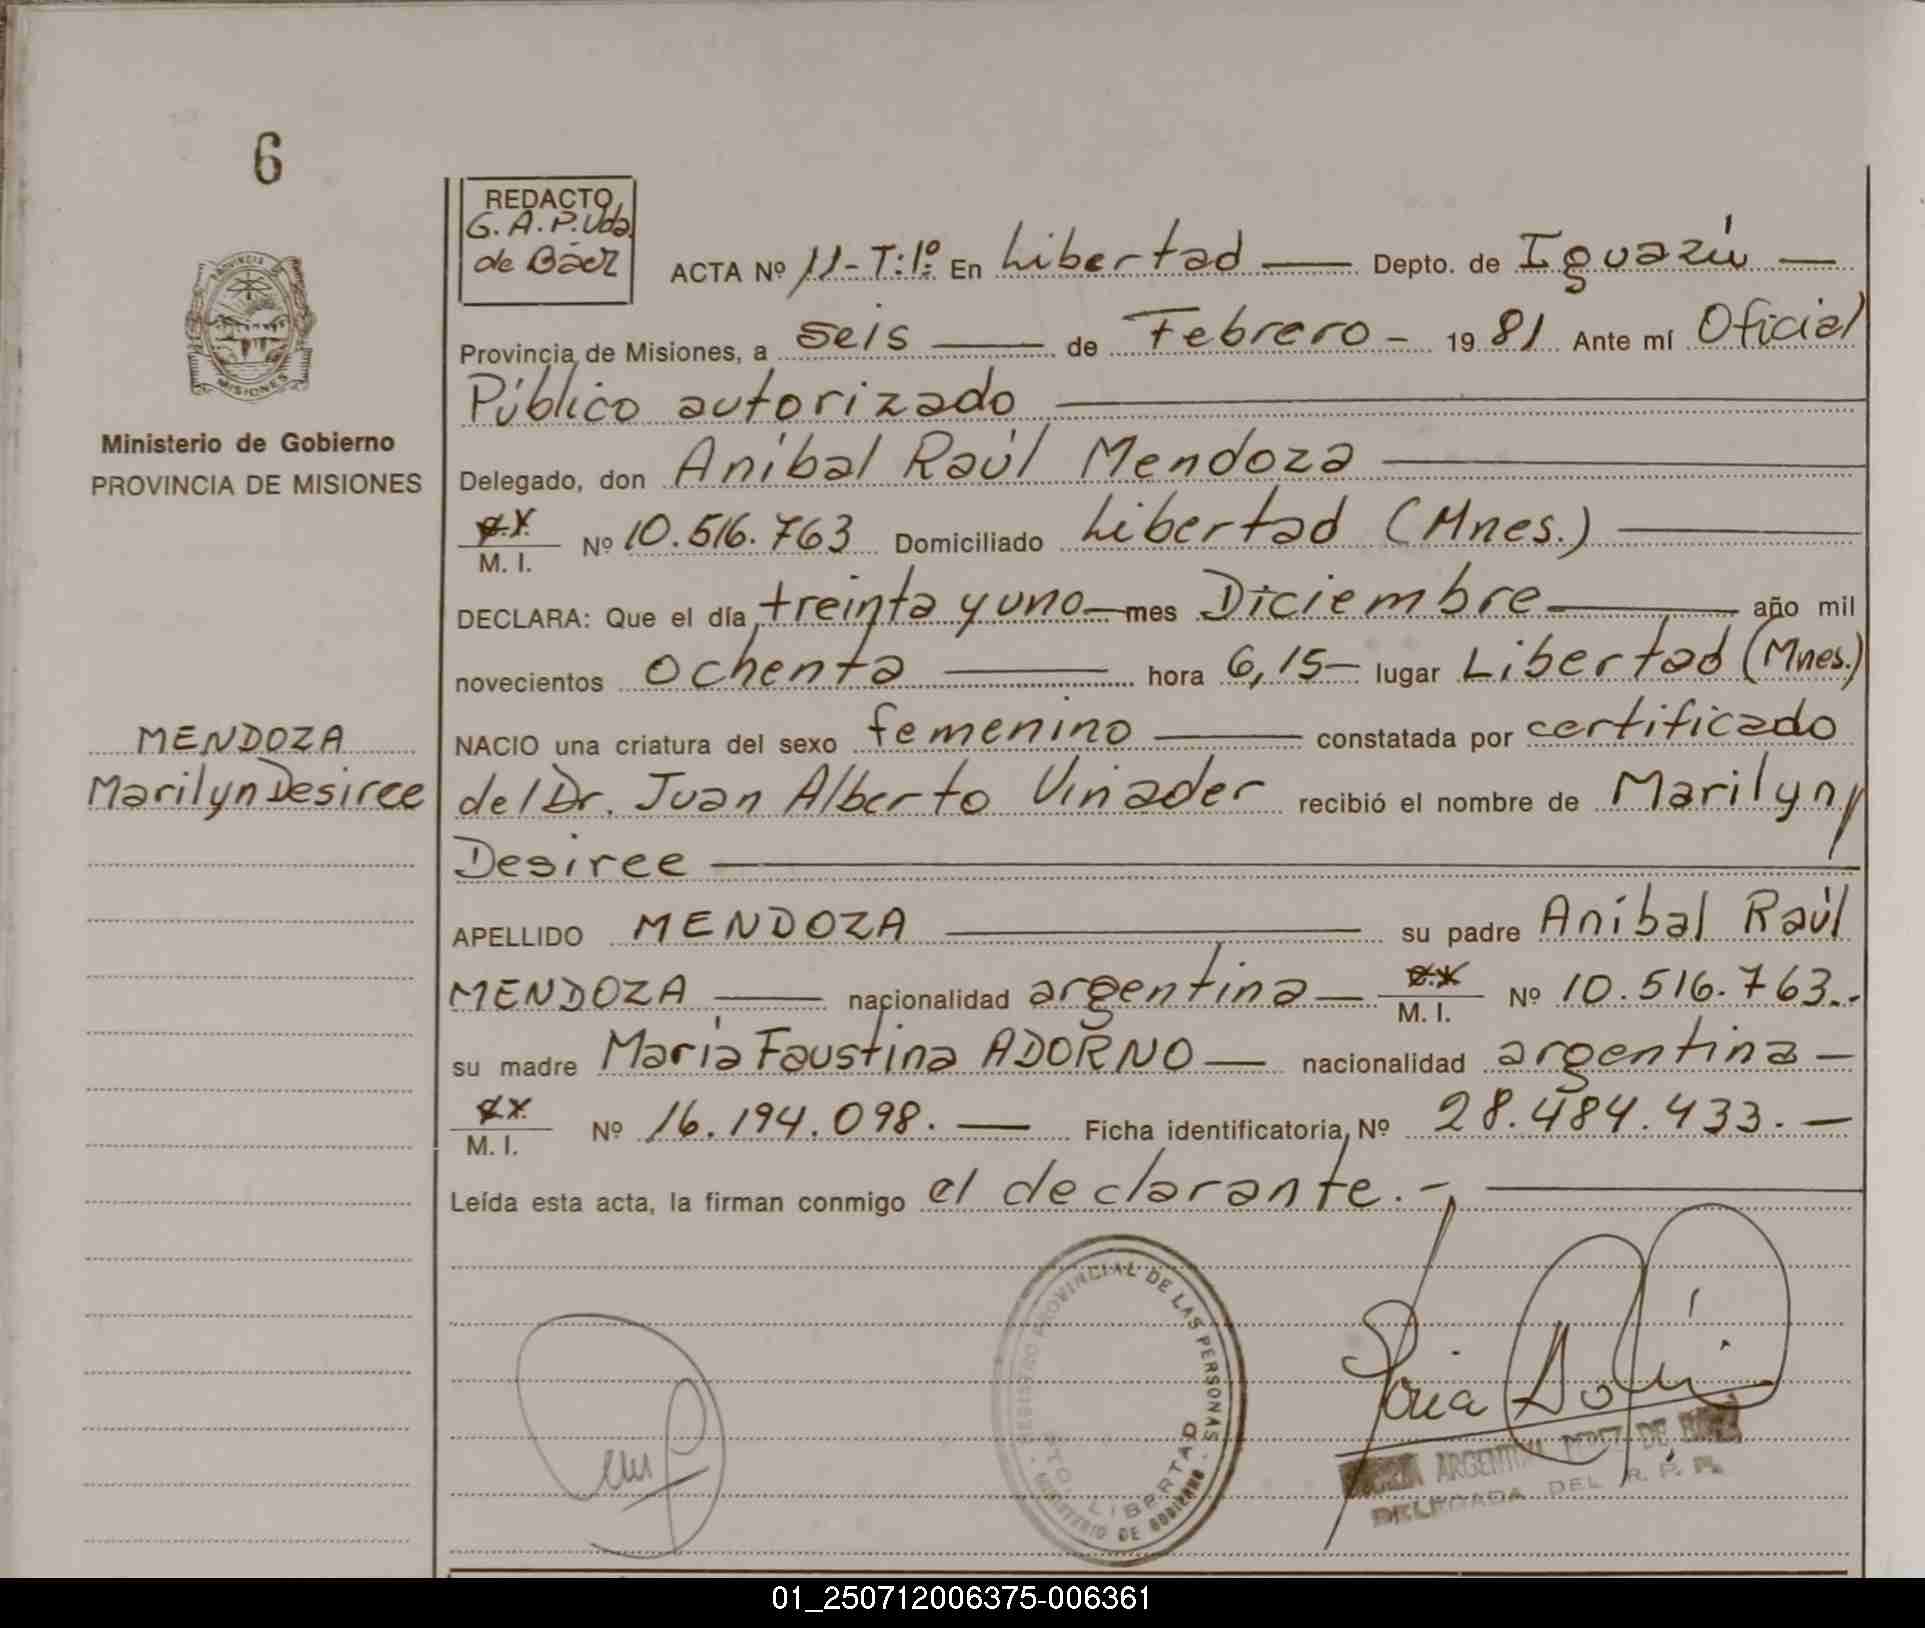 6
REDACTO
G. A. P. Vda.
de Báez
ACTA Nº 11-T:1º: En Libertad Depto. de Iguazú
Provincia de Misiones, a seis de Febrero - 1981 Ante mí Oficial
Público autorizado
Delegado, don Aníbal Raúl Mendoza
M. I. Nº 10.516.763 Domiciliado Libertad (Mnes.)
DECLARA: Que el día treinta y uno mes Diciembre año mil
novecientos ochenta hora 6,15 lugar Libertad (Mnes.)
NACIO una criatura del sexo femenino constatada por certificado
del Dr. Juan Alberto Viñader recibió el nombre de Marilyn
Desiree
APELLIDO MENDOZA su padre Aníbal Raúl
MENDOZA nacionalidad argentina M. I. Nº 10.516.763.-
su madre María Faustina ADORNO nacionalidad argentina
M. I. Nº 16.194.098. Ficha identificatoria Nº 28.484.433.-
Leída esta acta, la firman conmigo el declarante.-
PROVINCIA
MISIONES
Ministerio de Gobierno
PROVINCIA DE MISIONES
MENDOZA
Marilyn Desiree
REGISTRO PROVINCIAL DE LAS PERSONAS
LIBERTAD
MINISTERIO DE GOBIERNO
ARGENTINA PEREZ DE BAEZ
DELEGADA DEL R. P. P.
01_250712006375-006361